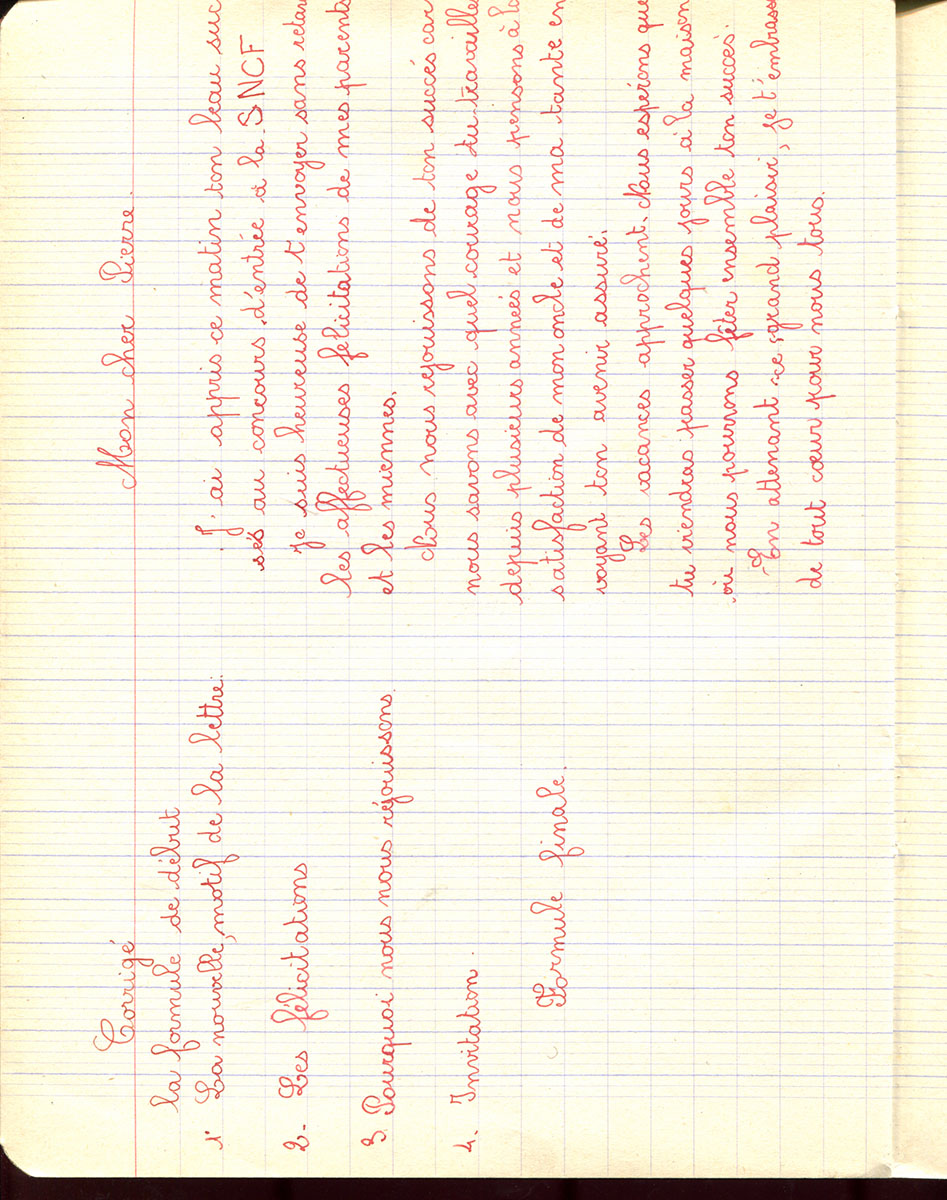 Corrigé
la formule de début
1 La nouvelle, motif de la lettre.
2- Les félicitations
3 Pourquoi nous nous réjouissons.
4. Invitation.
Formule finale.
Mon cher Pierre.
J'ai appris ce matin ton beau suc
sés au concours d'entrée à la SNCF
Je suis heureuse de t'envoyer sans retar
les affectueuses félicitations de mes parents
et les miennes.
Nous nous rejouissons de ton succés car
nous savons avec quel courage tu travailles
depuis plusieurs années et nous pensons à la
satisfaction de mon oncle et de ma tante en
voyant ton avenir assuré.
Les vacances approchent. Nous espérons que
tu viendras passer quelques jours à la maison
où nous pourrons fêter ensemble ton succès.
En attenant ce grand plaisir, je t'embrasse
de tout cœur pour nous tous.